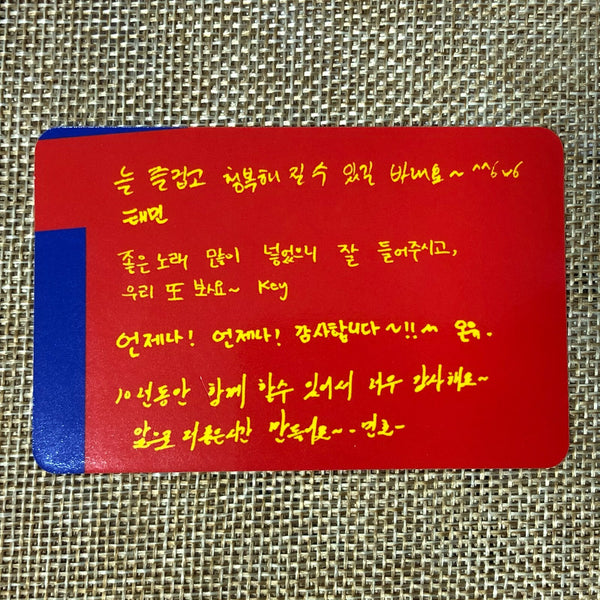 늘 즐겁고 행복해 질 수 있길 바래요~ ^^6v6
태민
좋은 노래 많이 넣었으니 잘 들어주시고,
우리 또 봐요~ Key
언제나! 언제나! 감사합니다~!! ^^ 온유.
10년동안 함께 할수 있어서 너무 감사해요~
앞으로 더 좋은시간 만들어요~ - 민호-